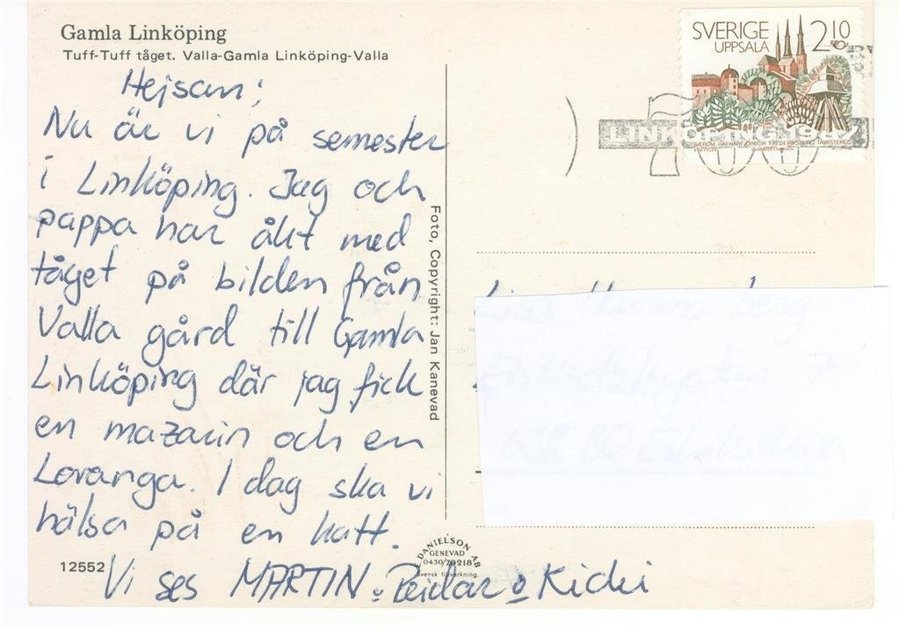 Gamla Linköping
Tuff-Tuff tåget. Valla-Gamla Linköping-Valla
Hejsan;
Nu är vi på semester
i Linköping. Jag och
pappa har åkt med
tåget på bilden från
Valla gård till Gamla
Linköping där jag fick
en mazarin och en
Loranga. I dag ska vi
hälsa på en katt.
Vi ses MARTIN o Reidar o Kicki
12552
Foto, Copyright: Jan Kanevad
DANIELSON AB
GENEVAD
0430/70218
Svensk tillverkning
SVERIGE 210
UPPSALA
LINKÖPING 1987